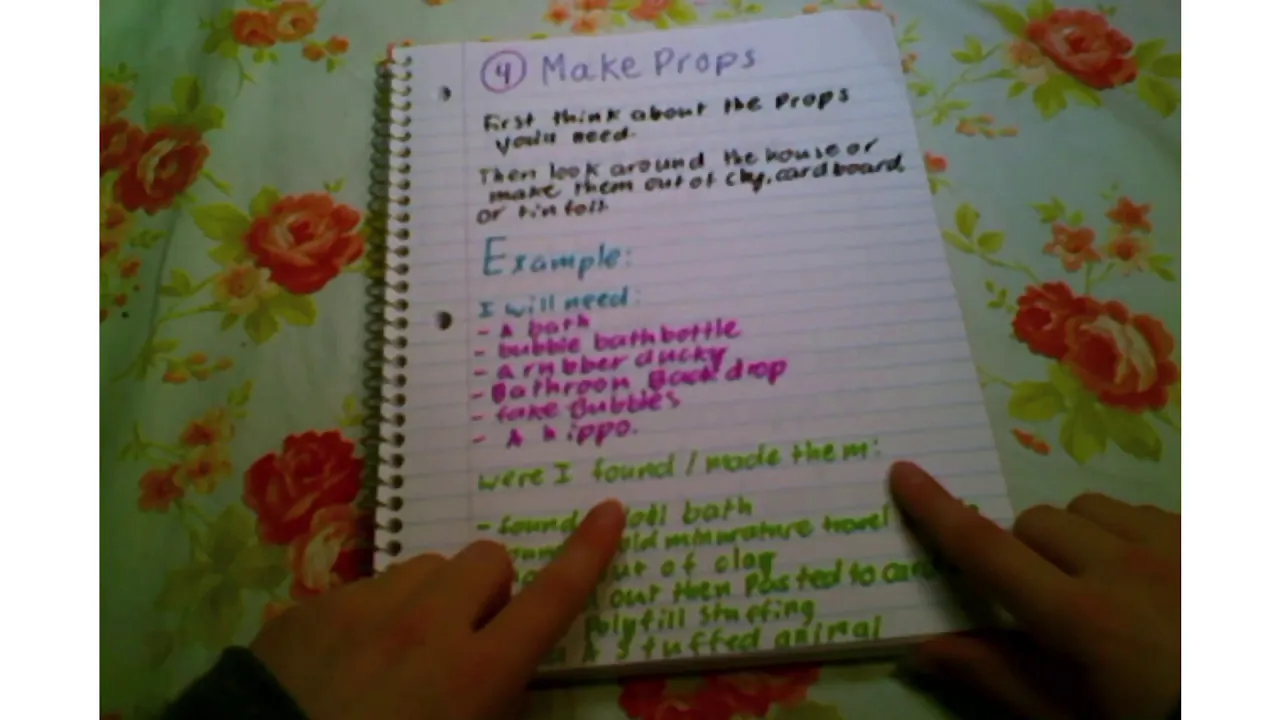 4 Make Props
First think about the Props
you'll need.
Then look around the house or
make them out of clay, cardboard,
or tin foil.
Example:
I will need:
- A bath
- bubble bath bottle
- a rubber ducky
- Bathroom Backdrop
- fake Bubbles
- A hippo.
were I found / made them:
- found doll bath
old minurature travel
out of clay
out then Pasted to
Polyfill stuffing
A stuffed animal